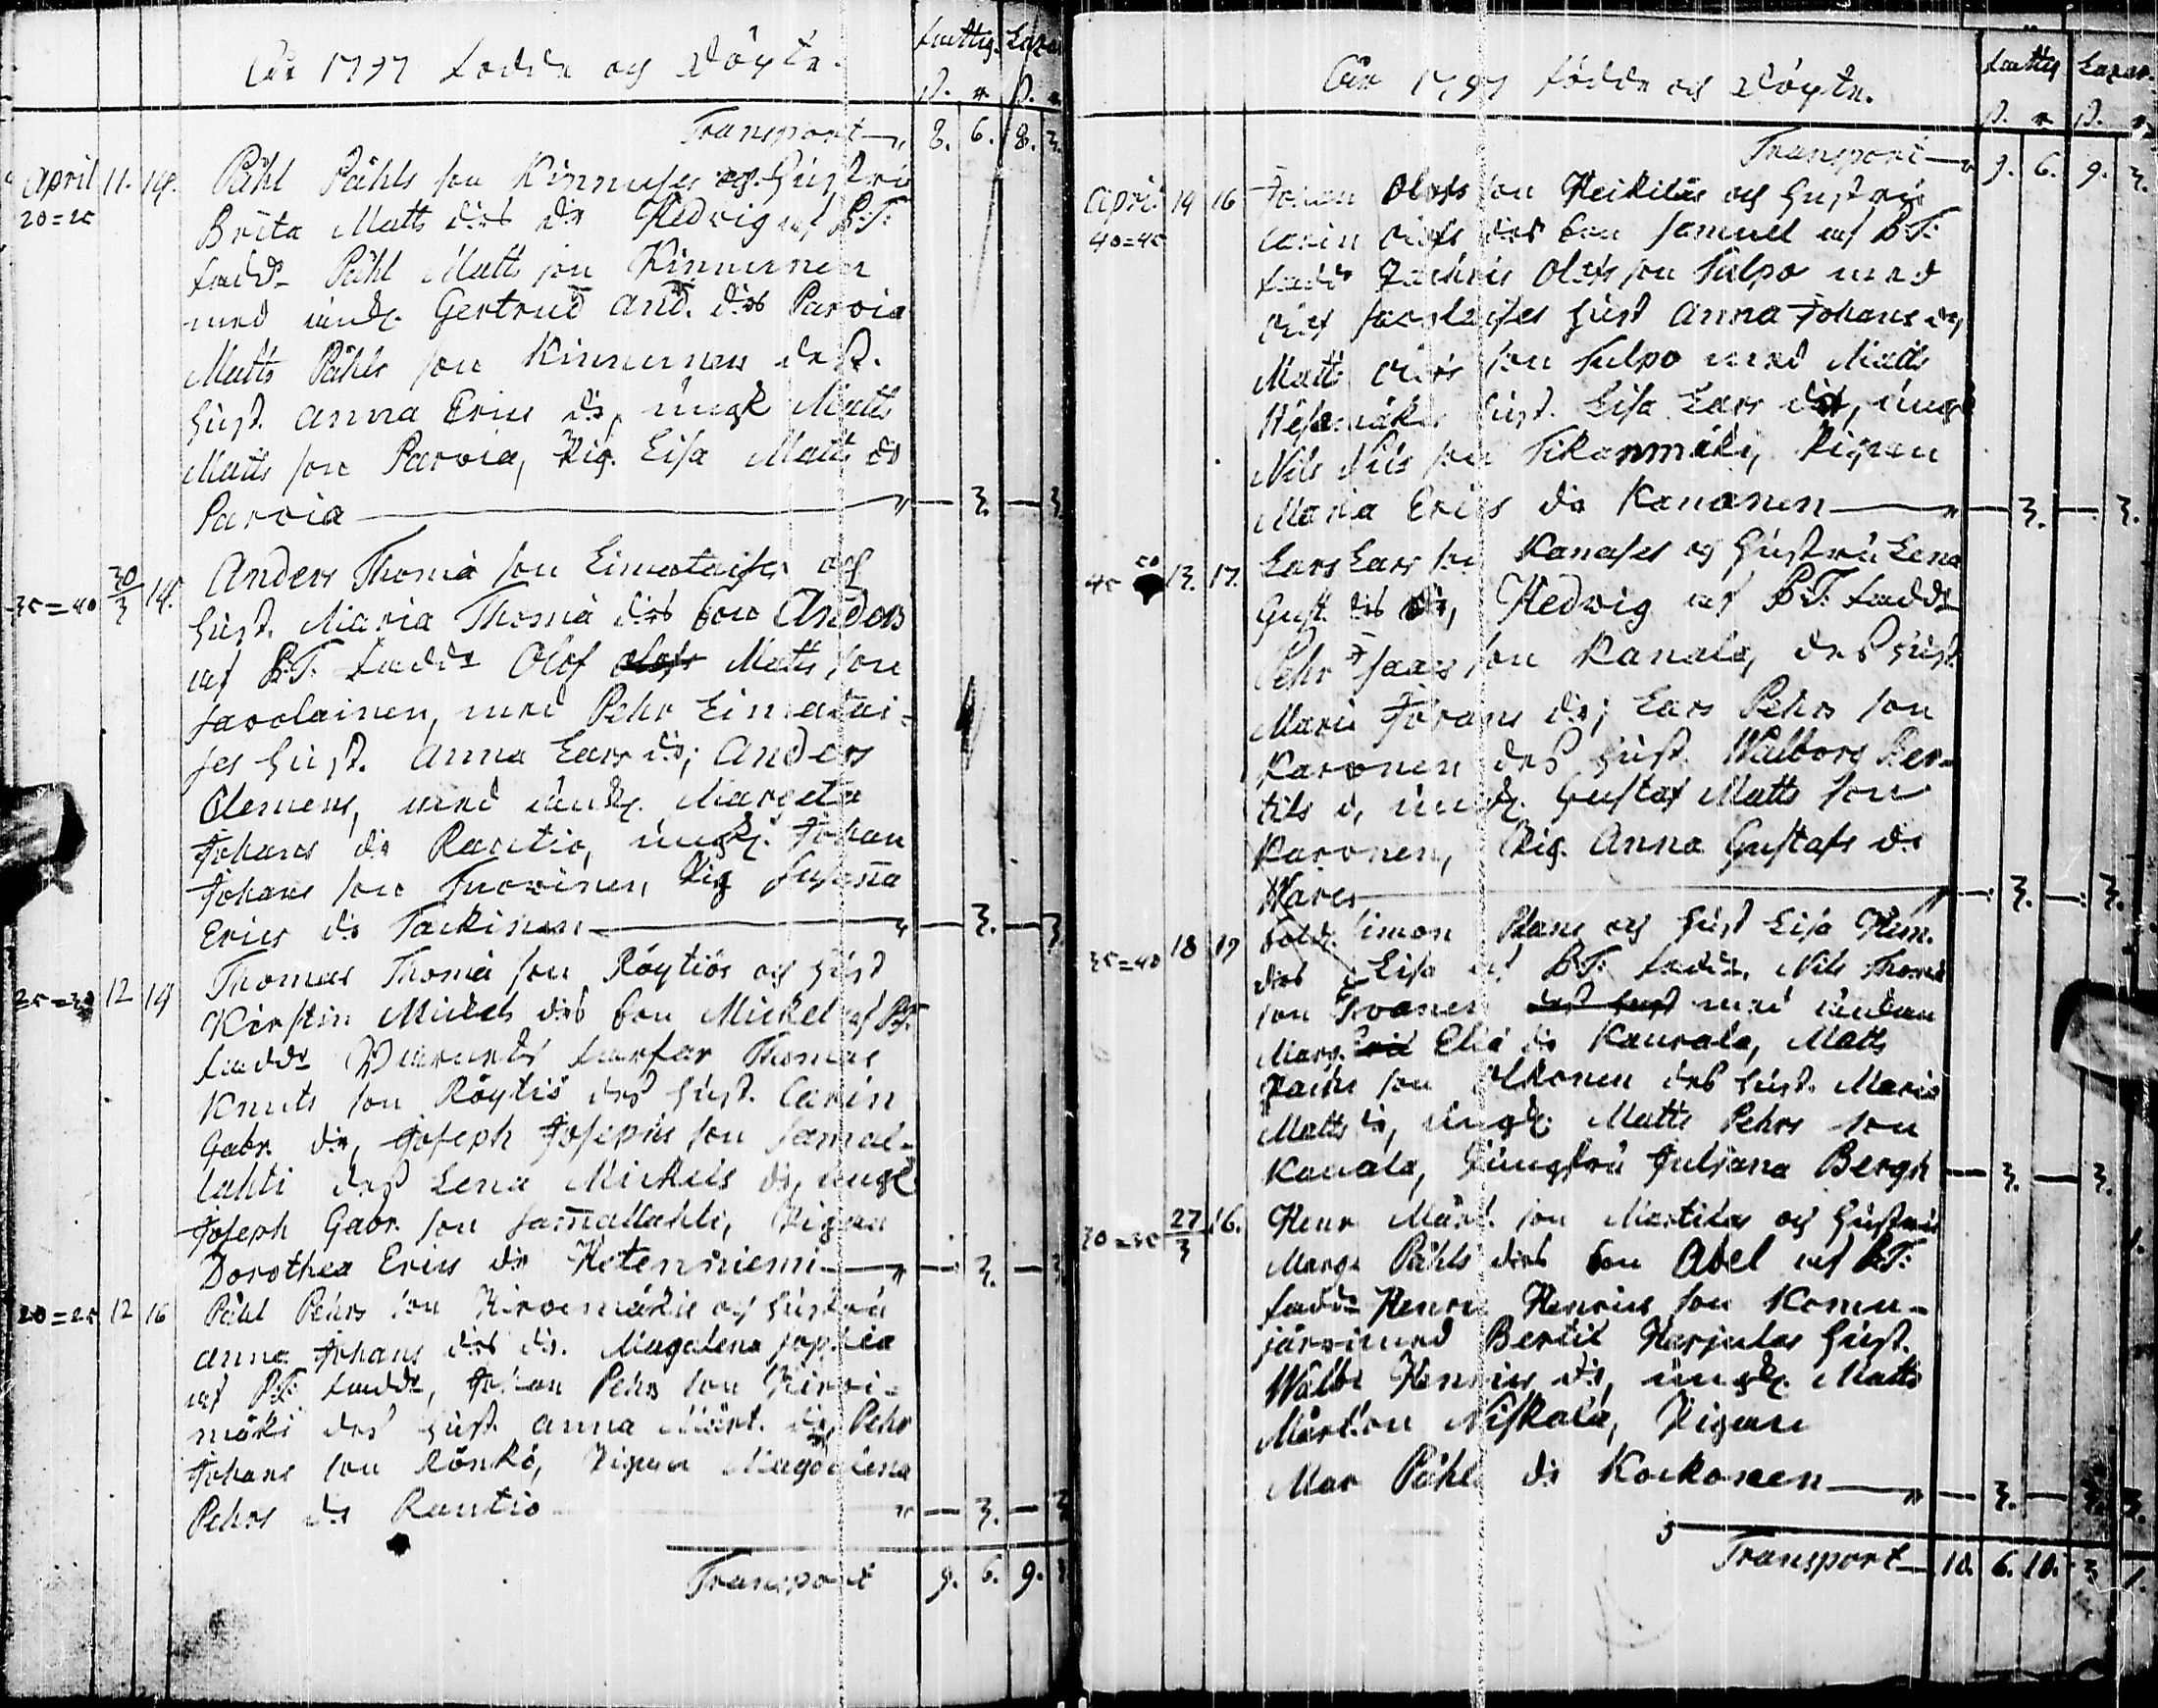 År 1797 födde og döpte.
fattig. Lazar.
ß. r. ß. r.
Transport 8. 6. 8. 3.
April 11. 14. Påhl Påhls son Kinnuses og hustru
20=25 Brita Matts drs dr Hedvig af B.T.
fadd. Påhl Matts son Kinnunen
med änk. Gertrud And. drs Parvia
Matts Påhls son Kinnunen deß.
hust. Anna Erics dr, ungk Matts
Matts son Parvia, Pig. Lisa Matts dr
Parvia — 3. — 3.
30/3 14. Anders Thomæ son Liimataises og
35=40 hust. Maria Thomæ drs son Anders
af B.T. fadde Olof Matts son
Savolainen, med Pehr Limatai-
ses hust. Anna Lars dr; Anders
Clemens, med änk. Margeta
Johans dr Rautio, ungk. Johan
Johans son Tuovinen, Pig Susanna
Erics dr Tackinen — 3. — 3.
25=30 12 14 Thomas Thomæ son Röytiös og hust
Kirstin Mickels drs son Mickel af B.T.
fadde Barnets farfar Thomas
Knuts son Röytiö deß hust. Carin
Gabr. dr, Joseph Josephs son Samal-
lahti deß Lena Mickels dr, ungk
Joseph Gabr. son Samallahti, Pigan
Dorothea Erics dr Hetenniemi — 3. — 3
20=25 12 16 Påhl Pehrs son Hirvimäkis og hustru
Anna Johans drs dr. Magalena Sophia
af B.T. fadde, Johan Pehrs son Hirvi-
mäki deß hust. Anna Mårt. dr, Pehr
Johans son Rönkö, Pigan Magdalena
Pehrs dr Rautio — 3. — 3
Transport 9. 6. 9. 3
År 1797 födde og döpte.
fattig Lazar.
ß. r. ß. r.
Transport 9. 6. 9. 3.
April 14 16 Johan Olofs son Heikiläs og hustru
40=45 Carin Olofs drs son Samuel af B.T.
fadde Zachris Olofs son Tulpo med
Olof Savolaises hust Anna Johans dr
Matts Olofs son Tulpo med Matts
Wesamäkis hust. Lisa Lars dr, ungk
Nils Nils son Tikanmäki, Pigan
Maria Erics dr Kananen — 3. — 3.
45 50 13. 17. Lars Lars son Kanases og hustru Lena
Gust. drs dr, Hedvig af B.T. fadde
Pehr Isaacs son Kanala, deß hust
Maria Johans dr; Lars Pehrs son
Karonen deß hust. Walborg Ber-
tils d, ungk. Gustaf Matts son
Karonen, Pig. Anna Gustafs dr
Wares — 3. — 3.
35=40 18 19 Sold. Simon Plane og hust Lisa Hen.
drs dr Lisa af B.T. fadde, Nils Thomæ
son Tvanen deß hust med änkan
Marg. Eliæ dr Kaurala, Matts
son Ilkonen deß hust. Maria
Matts dr, Ungk. Matts Pehrs son
Kauala, Jungfru Juliana Bergh — 3. — 3.
30=35 27/3 16. Henr Mårt. son Martikas og hustru
Marge Påhls drs son Abel af B.T.
fadde Henric Henrics son Komu-
järvi med Bertil Harjulas hust.
Walb. Henrics dr, ungk. Matts
Mårt. son Niskala, Pigan
Mar Påhls dr Korkonen — 3. — 3. 3.
Transport 10. 6. 10. 3 1.